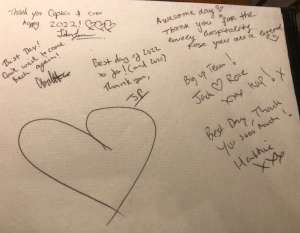 Thank you
& crew
Happy 2022!
Best Day!
Can't wait to come
back again!
Best day of 2022
so far! (and 2021)
Thank you,
Awesome day
Thank you for the
lovely hospitality
Rose you are a legend
Big up Team!
Jack Rose
xxx
Best Day, Thank
you soooo much!
Hattie
xxx